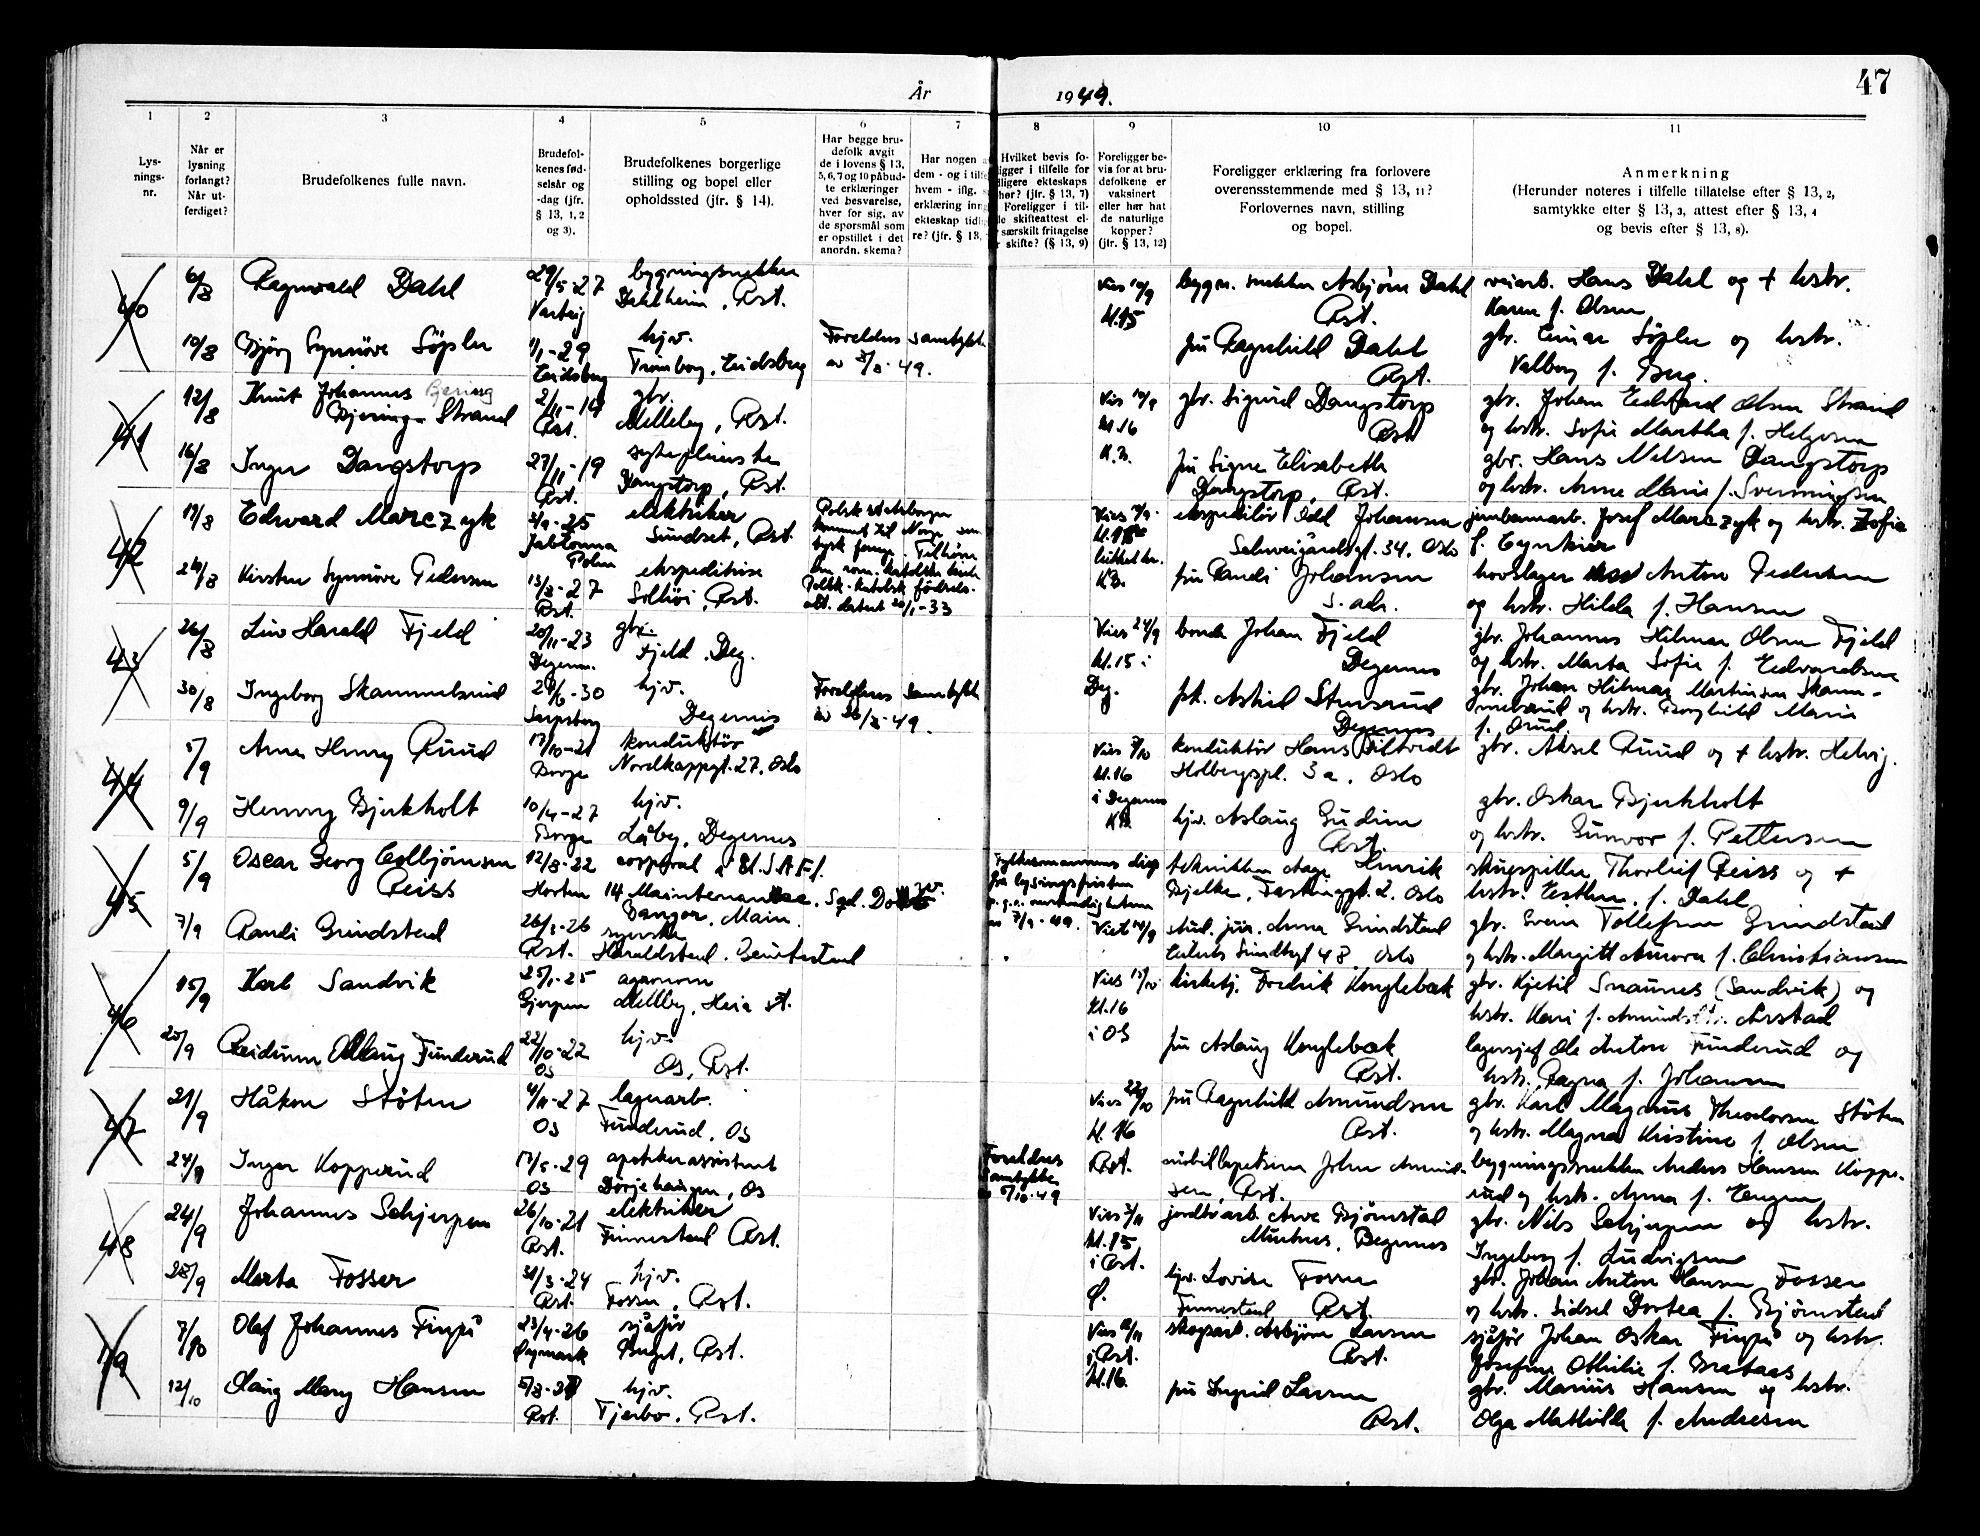 År 1949.
47
1 2 3 4 5 6 7 8 9 10 11
Lys-
nings-
nr.
Når er
lysning
forlangt?
Når ut-
ferdiget?
Brudefolkenes fulle navn.
Brudefol-
kenes fød-
selsår og
-dag (jfr.
§ 13, 1, 2
og 3).
Brudefolkenes borgerlige
stilling og bopel eller
opholdssted (jfr. § 14).
Har begge bru-
defolk avgit
de i lovens § 13,
5, 6, 7 og 10 påbud-
te erklæringer
ved besvarelse,
hver for sig, av
de spørsmål som
er opstillet i det
anordn. skema?
Har nogen a
dem - og i tilfe
hvem - iflg. s
erklæring inng
ekteskap tidlig
re? (jfr. § 13,
Hvilket bevis fo-
ligger i tilfelle for
dligere ekteskaps
hør? (jfr. § 13, 7)
Foreligger i til-
le skifteattest el-
særskilt fritagelse
r skifte? (§ 13, 9)
Foreligger be-
vis for at bru-
defolkene er
vaksinert
eller har hat
de naturlige
kopper?
(jfr. § 13, 12)
Foreligger erklæring fra forlovere
overensstemmende med § 13, 11?
Forlovernes navn, stilling
og bopel.
Anmerkning
(Herunder noteres i tilfelle tillatelse efter § 13, 2,
samtykke efter § 13, 3, attest efter § 13, 4
og bevis efter § 13, 8).
40
6/8 Ragnvald Dahl 29/5-27 bygningssnekker
Varteig Dahlheim, Rst.
Vies 10/9 bygn. snekker Asbjørn Dahl
kl. 15 Rst.
veiarb. Hans Dahl og + hstr.
Karen f. Olsen
10/8 Bjørg Synnøve Söpler 1/1-29 hjv.
Eidsberg Trømborg, Eidsberg
Foreldres samtykke
av 8/8-49.
fru Ragnhild Dahl
Rst.
gbr. Einar Söpler og hstr.
Valborg f. Berg.
41
12/8 Knut Johannes Bjering
Bjering-Strand 2/11-19 gbr.
Rst. Melleby, Rst.
Vies 10/9 gbr. Sigurd Dangstorp
kl. 16 Rst
K.B.
gbr. Johan Edvard Olsen Strand
og hstr. Sofie Martha f. Helgesen
16/8 Inger Dangstorp 27/11-19 sykepleierske
Rst. Dangstorp, Rst.
fru Signe Elisabeth
Dangstorp, Rst.
gbr. Hans Nilsen Dangstorp
og hstr. Anne Marie f. Svenningsen
42
17/8 Edward Marczyk 3/9-25 elektriker
Jablonna Polen Sundset, Rst.
Polsk statsborger
kommet til Norge som
tysk fange. Tilhører
den rom. katolske kirke
Polsk-katolsk fødsels-
att. datert 20/1-33
ekspeditör Odd Johansen
Schweigårdsgt. 34, Oslo
jernbanearb. Josef Marczyk og hstr. Zofia
f. Cynkier
24/8 Kirsten Synnöve Pedersen 13/8-27 ekspeditrise
Rst. Solhöi, Rst.
K.B. fru Randi Johansen
s. adr.
hovslager Anton Pedersen
og hstr. Hilda f. Hansen
43
26/8 Leiv Harald Fjeld 20/11-23 gbr.
Degernes. Fjeld, Deg.
Vies 24/9 bonde Johan Fjeld
kl. 15 i Degernes
Deg.
gbr. Johannes Hilmar Olsen Fjeld
og hstr. Marta Sofie f. Edvardsen
30/8 Ingeborg Skammelsrud 24/6-30 hjv.
Sarpsborg Degernes
Foreldres samtykke
av 26/8-49.
frk. Astrid Stensrud
Degernes
gbr. Johan Hilmar Martinsen Skam-
melsrud og hstr. Borghild Marie
f. Ruud.
44
5/9 Arne Henry Ruud 17/10-21 konduktör
Borge Nordkappgt. 27, Oslo
Vies 8/10 konduktör Hans Biltvedt
kl. 16 Holbergspl. 3a, Oslo
i Degernes
K.B.
gbr. Aksel Ruud og + hstr. Helvig.
9/9 Henny Bjerkholt 10/4-27 hjv.
Borge Låby, Degernes
hjv. Aslaug Gudim
Rst.
gbr. Oskar Bjerkholt
og hstr. Gunvor f. Pettersen
45
5/9 Oscar Georg Colbjörnsen
Reiss 12/8-22 corporal i U.S.A.F.
Horten 14. Maintenance. Sqd. Dow
Bangor, Main.
Fylkesmannens disp
fra lysingsfristen
p.g.a. nødvendigheten
av 7/9-49.
tekniker Aage Henrik
Bjelke, Fastingsgt. 2. Oslo
skuespiller Thorleif Reiss og +
hstr. Esther, f. Dahl
7/9 Randi Grindstad 26/2-26 syerske
Rst. Haraldstad. Gautestad
Viet 10/9 stud. jur. Arne Grindstad
Eilerts Sundtsgt 48 Oslo
gbr. Sven Tollefsen Grindstad
og hstr. Margitt Aurora f. Christiansen
46
15/9 Karl Sandvik 25/1-25 agronom
Gjerpen Melleby, Heia st.
Vies 15/10 kirketj. Fredrik Konglebæk
kl. 16
i OS
gbr. Kjetil Snaunes (Sandvik) og
hstr. Kari f. Amundsdtr. Årstad
20/9 Reidunn Ollaug Funderud 22/10-22 hjv.
Os Os, Rst.
fru Aslaug Konglebæk
Rst.
lagersjef Ole Anton Funderud og
hstr. Ragna f. Johansen
47
21/9 Håkon Stöten 4/11-27 lagerarb.
OS Funderud, OS
Vies 22/10 fru Ragnhild Amundsen
kl. 16 Rst.
Rst.
gbr. Karl Magnus Theodorsen Stöten
og hstr. Magna Kristine f. Olsen
24/9 Inger Kopperud 17/5-29 apotekerassistent
OS Borjehaugen, Os
Foreldres
samtykke
av 5/10-49
mobilreparatør John Amund-
sen, Rst.
bygningssnekker Anders Hansen Koppe-
rud og hstr. Anna f. Engen
48
24/9 Johannes Schjerpen 26/10-21 elektriker
Rst. Finnestad Rst.
Vies 5/11 jordbr.arb. Arve Bjørnstad
kl. 15 Musnes, Degernes
i Rst.
Ø.
gbr. Nils Schjerpen og hstr.
Ingeborg f. Ludvigsen
28/9 Marta Fosser 31/3-24 hjv.
Rst. Fosser, Rst.
hjv. Lovise Fosser
Finnestad Rst.
gbr. Johan Anton Hansen Fosser
og hstr. Sidsel Dortea f. Bjørnstad
49
7/10 Olaf Johannes Fingå 23/4-26 sjåför
Øymark Buget, Rst.
Vies 12/11 skogsarb. Asbjørn Larsen
i Rst. Rst.
kl. 16.
sjåför Johan Oskar Fingå og hstr.
Josefine Othilie f. Brataas
12/10 Olaug Mary Hansen hjv.
Rst. Fjerbo, Rst.
fru Ingrid Larsen
Rst.
gbr. Marius Hansen og hstr.
Olga Mathilde f. Andresen